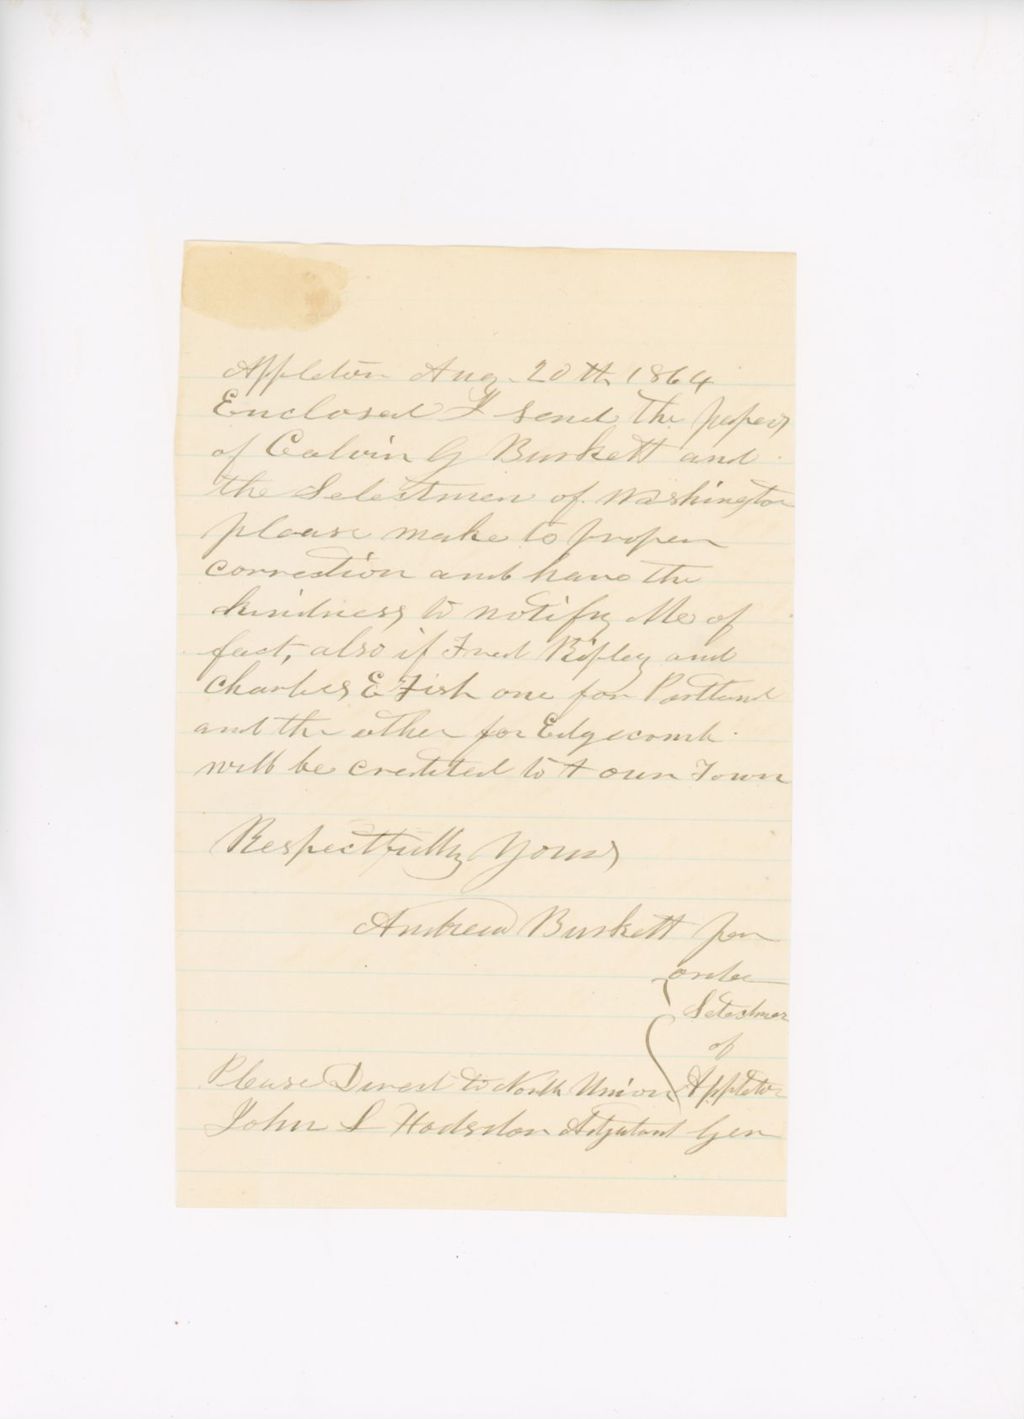 Appleton Aug. 20th 1864
Enclosed I send the papers
of Calvin G Burkett and
the Selectmen of Washington
please make to proper
correction and have the
kindness to notify Me of
fact, also if Fred Ripley and
Charles E Fish one for Portland
and the other for Edgecomb
will be credited to our Town
Respectfully Yours
Andrew Burkett per
order
Selectmen
of
Please Direct to North Union Appleton
John L Hodsdon Adjutant Gen